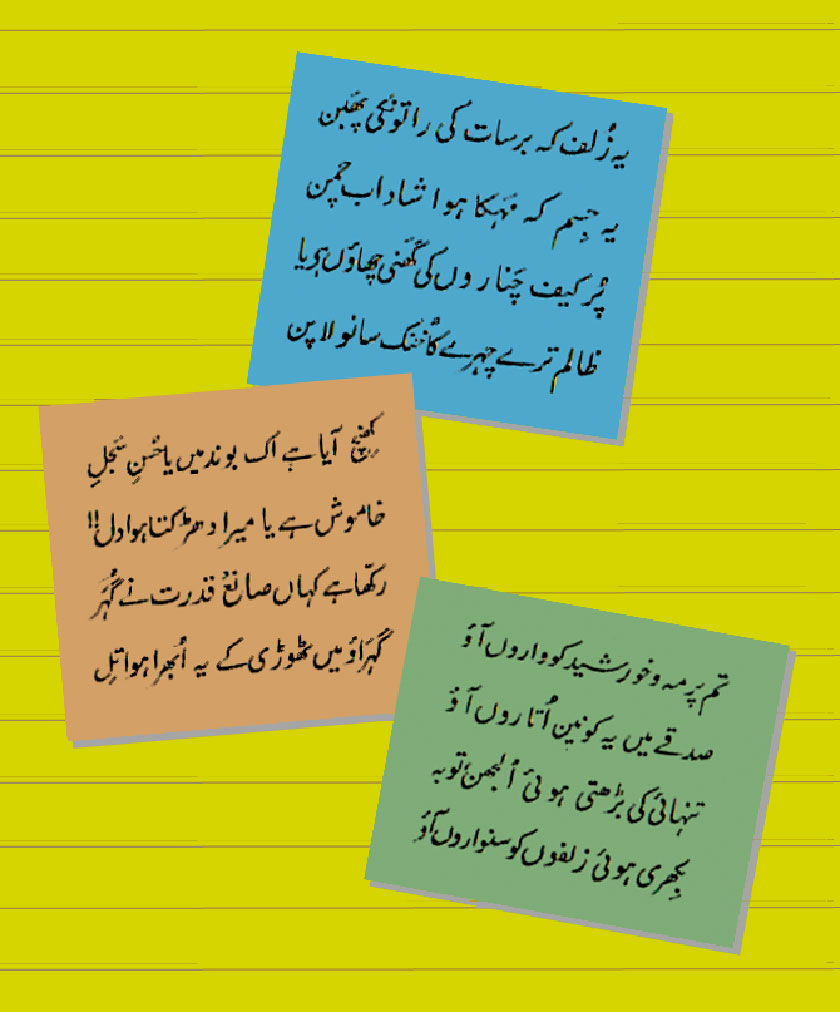 یہ زُلف کہ برسات کی راتوں کی پھَبن
یہ جِسم کہ مَہکا ہوا شاداب چمن
پُر کیف چَناروں کی گھَنی چھاؤں ہو یا
ظالم ترے چہرے کا خُنک سانولا پن
کھِنچ آیا ہے اک بوند میں یا حُسنِ سَجَل
خاموش ہے یا میرا دھڑکتا ہوا دل!!
رکھّا ہے کہاں صانعِ قدرت نے گُہر
گہراؤ میں ٹھوڑی کے یہ اُبھرا ہوا تِل
تم پَر مہ و خورشید کو واروں آؤ
صدقے میں یہ کونین اُتاروں آؤ
تنہائی کی بڑھتی ہوئی اُلجھن توبہ
بِکھری ہوئی زلفوں کو سنواروں آؤ